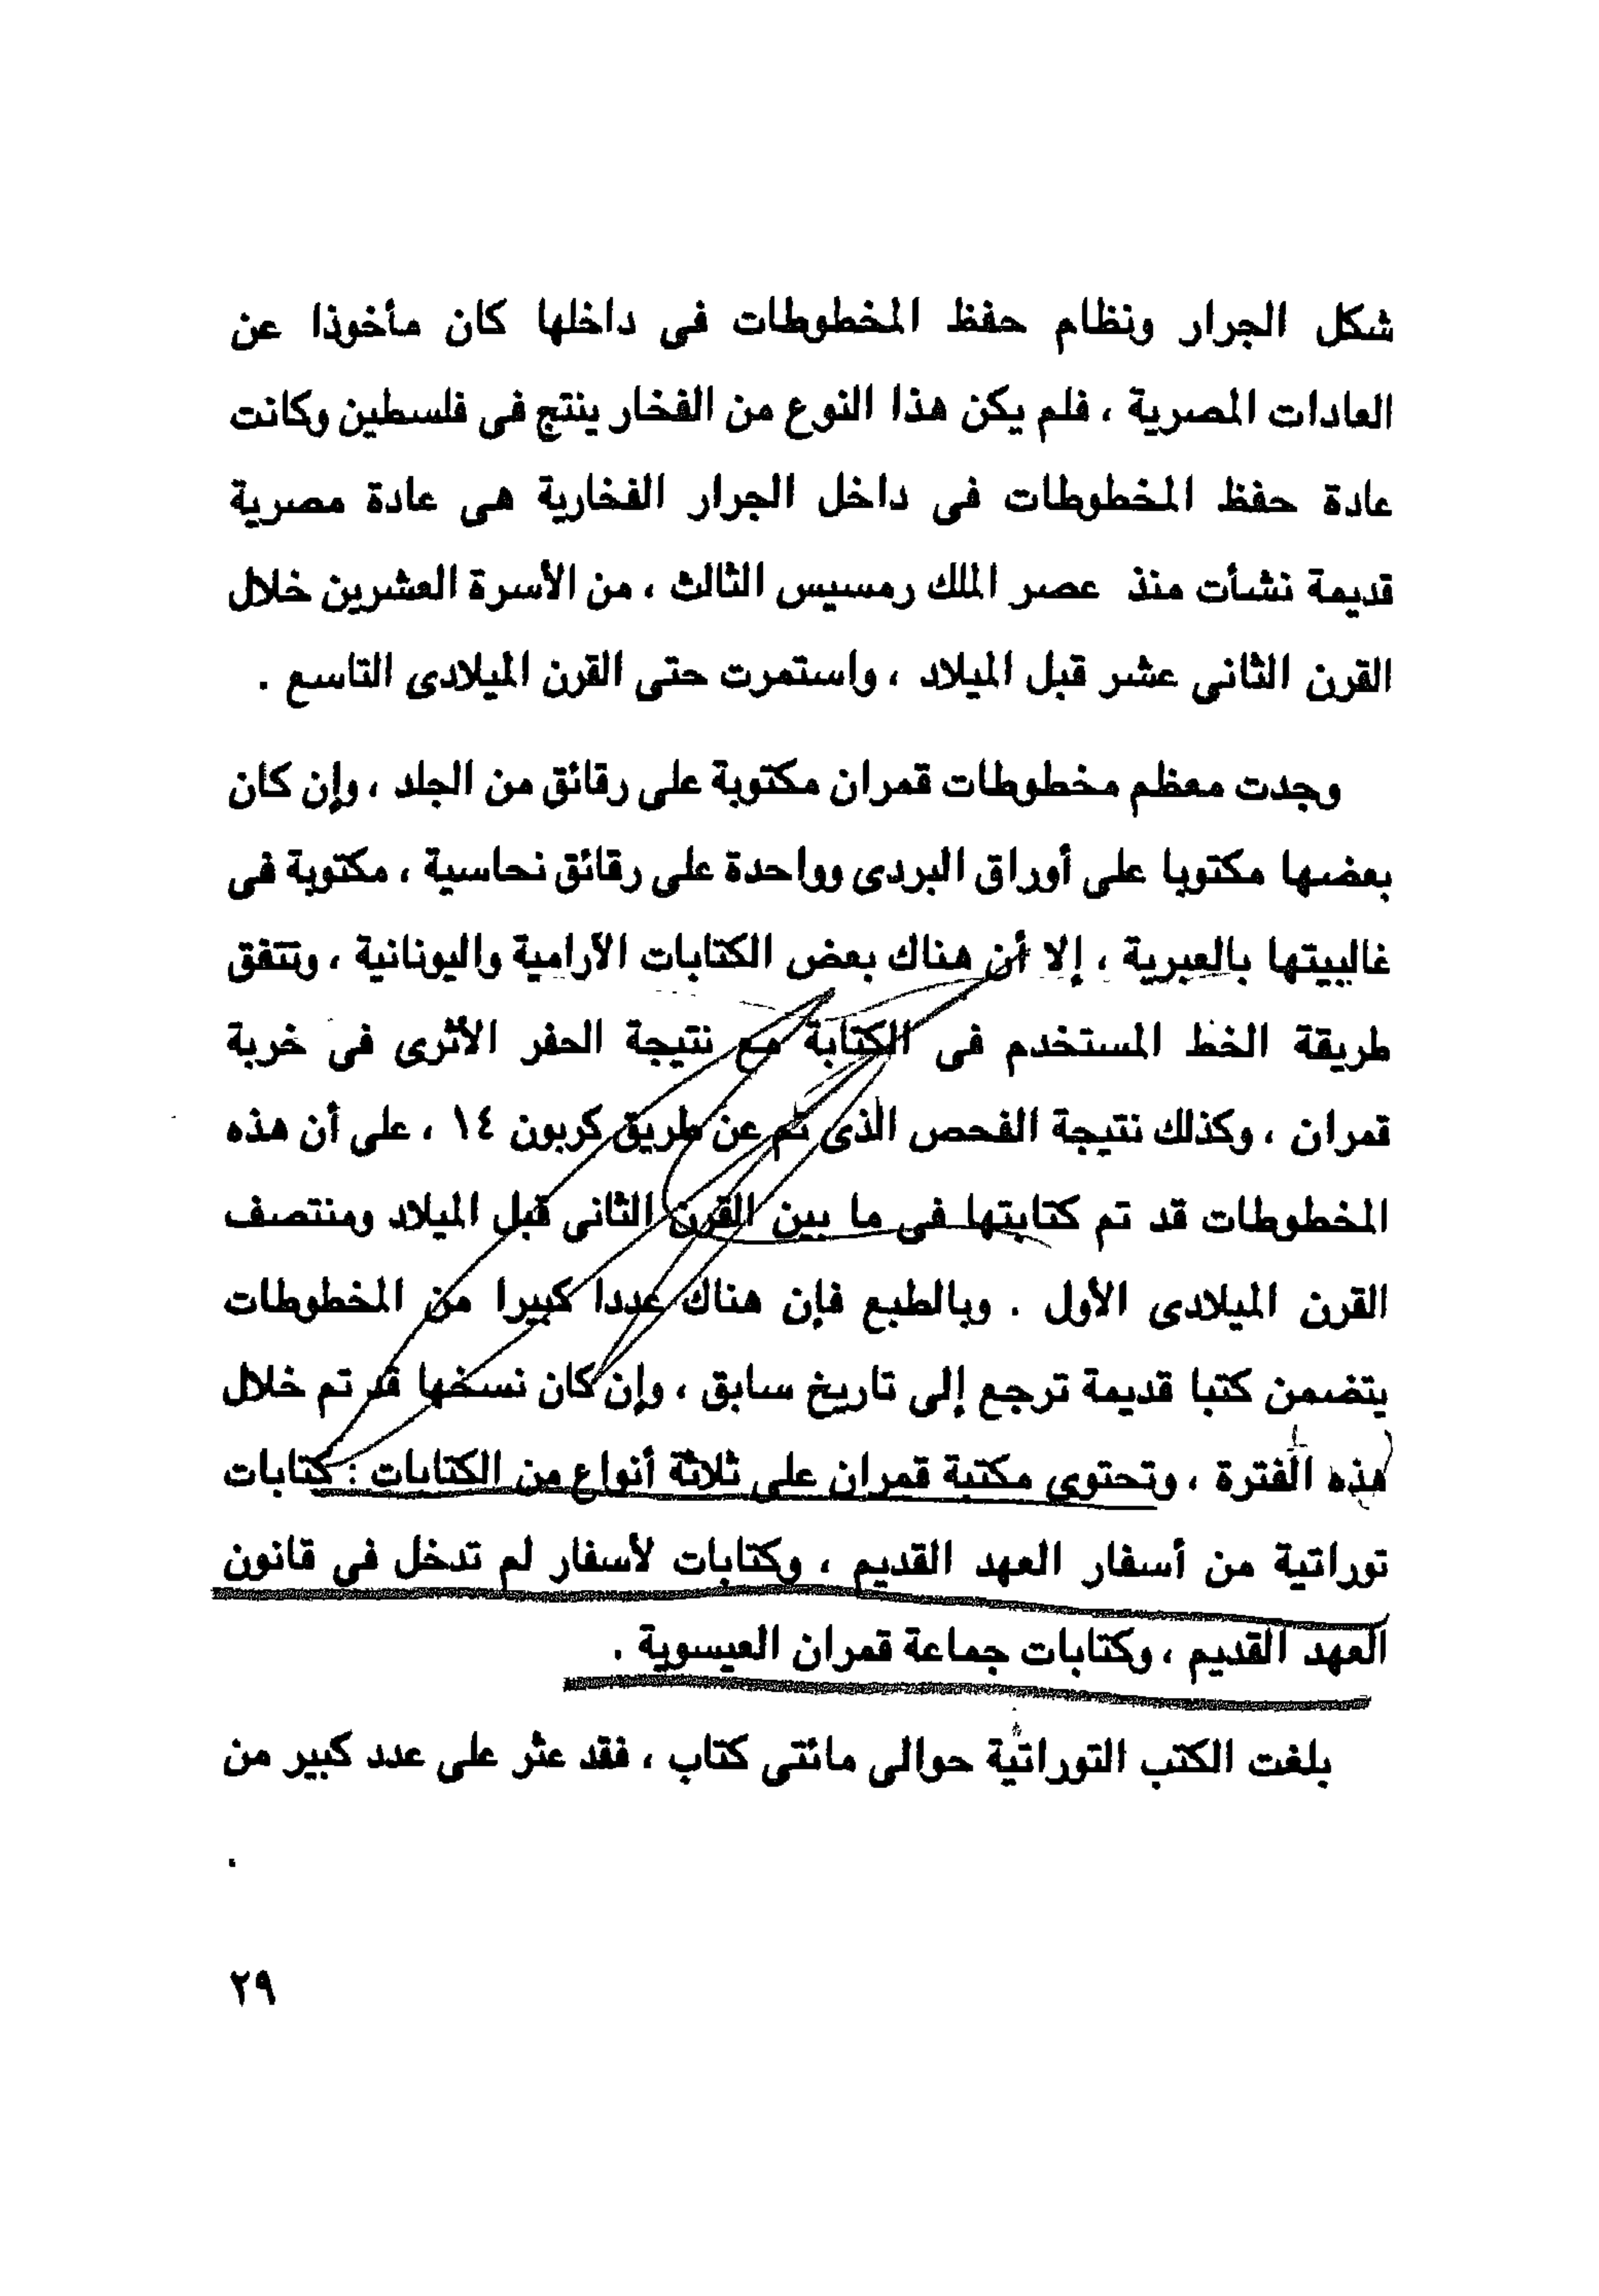 شكل الجرار ونظام حفظ المخطوطات فى داخلها كان مأخوذا عن
العادات المصرية ، فلم يكن هذا النوع من الفخار ينتج فى فلسطين وكانت
عادة حفظ المخطوطات فى داخل الجرار الفخارية هى عادة مصرية
قديمة نشأت منذ عصر الملك رمسيس الثالث ، من الأسرة العشرين خلال
القرن الثانى عشر قبل الميلاد ، واستمرت حتى القرن الميلادى التاسع .
وجدت معظم مخطوطات قمران مكتوبة على رقائق من الجلد ، وإن كان
بعضها مكتوبا على أوراق البردى وواحدة على رقائق نحاسية ، مكتوبة فى
غالبيتها بالعبرية ، إلا أن هناك بعض الكتابات الآرامية واليونانية ، وتتفق
طريقة الخط المستخدم فى الكتابة مع نتيجة الحفر الأثرى فى خربة
قمران ، وكذلك نتيجة الفحص الذى تم عن طريق كربون ١٤ ، على أن هذه
المخطوطات قد تم كتابتها فى ما بين القرن الثانى قبل الميلاد ومنتصف
القرن الميلادى الأول . وبالطبع فإن هناك عددا كبيرا من المخطوطات
يتضمن كتبا قديمة ترجع إلى تاريخ سابق ، وإن كان نسخها قد تم خلال
هذه الفترة ، وتحتوى مكتبة قمران على ثلاثة أنواع من الكتابات : كتابات
توراتية من أسفار العهد القديم ، وكتابات لأسفار لم تدخل فى قانون
العهد القديم ، وكتابات جماعة قمران العيسوية .
بلغت الكتب التوراتية حوالى مائتى كتاب ، فقد عثر على عدد كبير من
٢٩